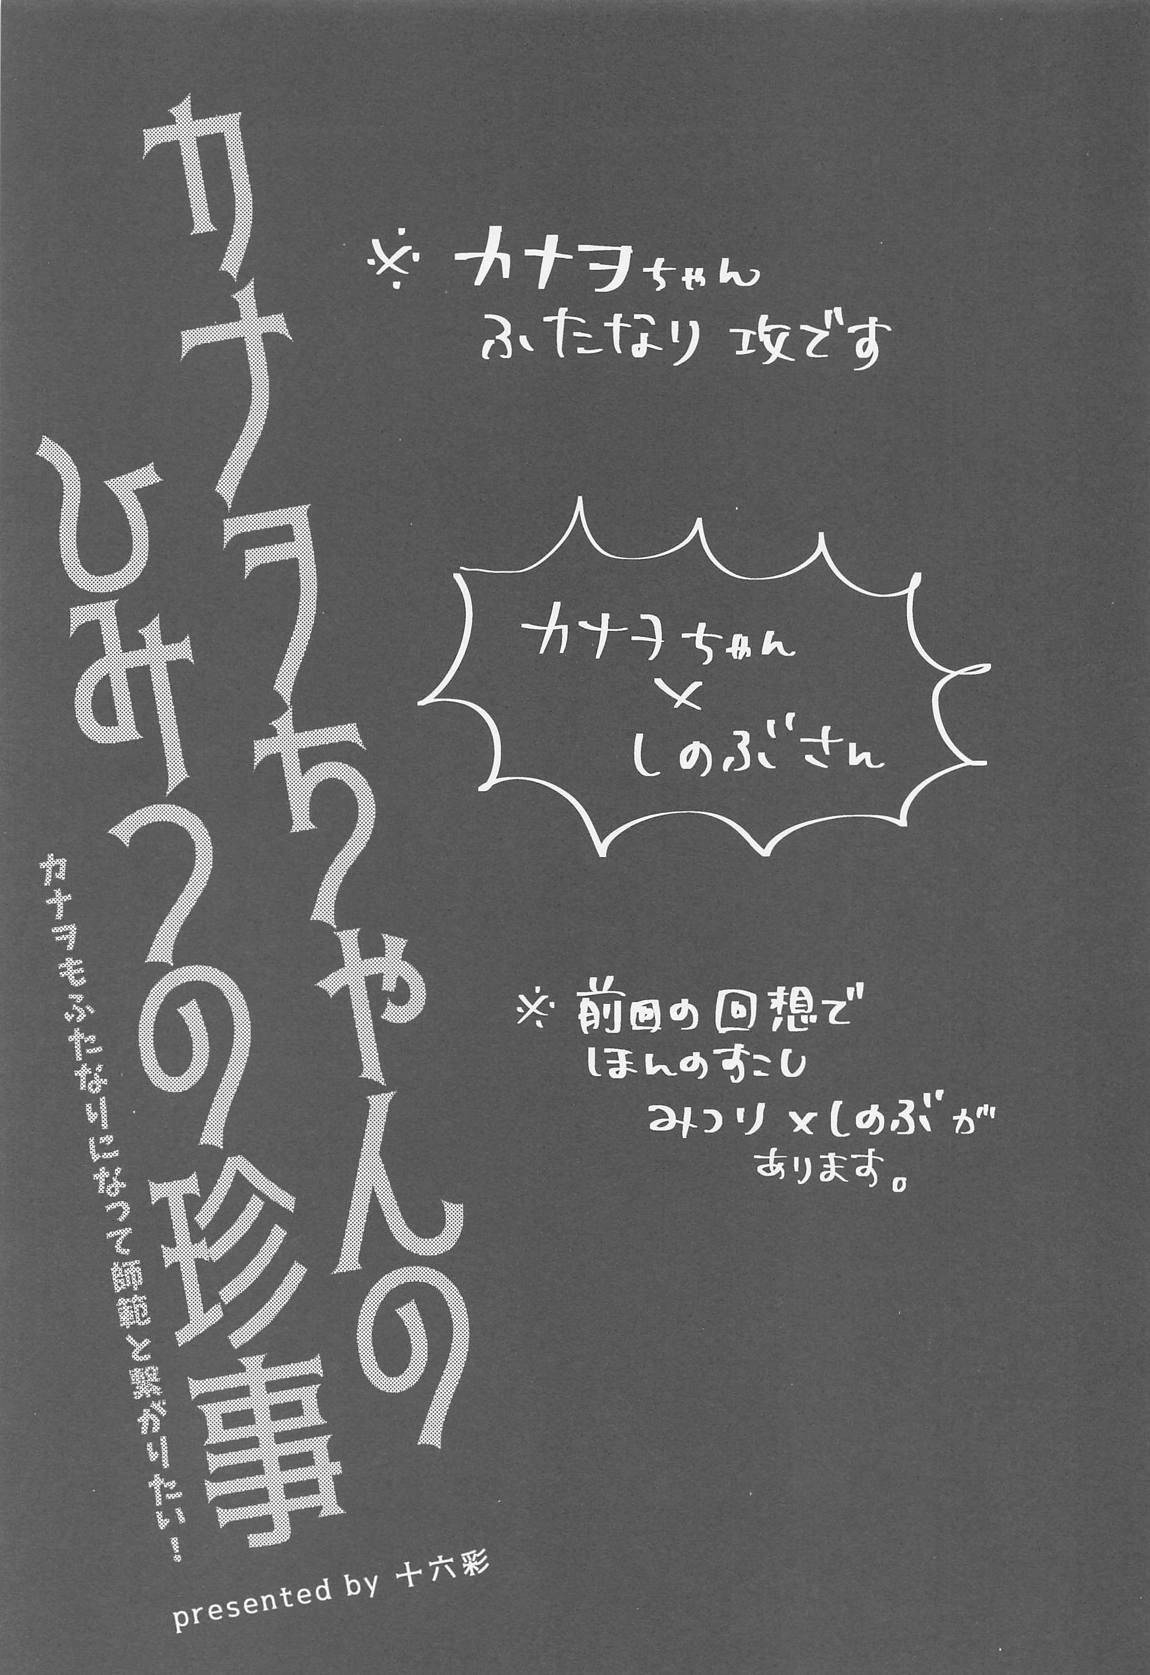 カナヲちゃんの
ひみつの珍事
カナヲもふたなりになって師範と繋がりたい！
presented by 十六彩
※ カナヲちゃん
ふたなり 攻です
カナヲちゃん
×
しのぶさん
※ 前回の回想で
ほんのすこし
みつり×しのぶが
あります。